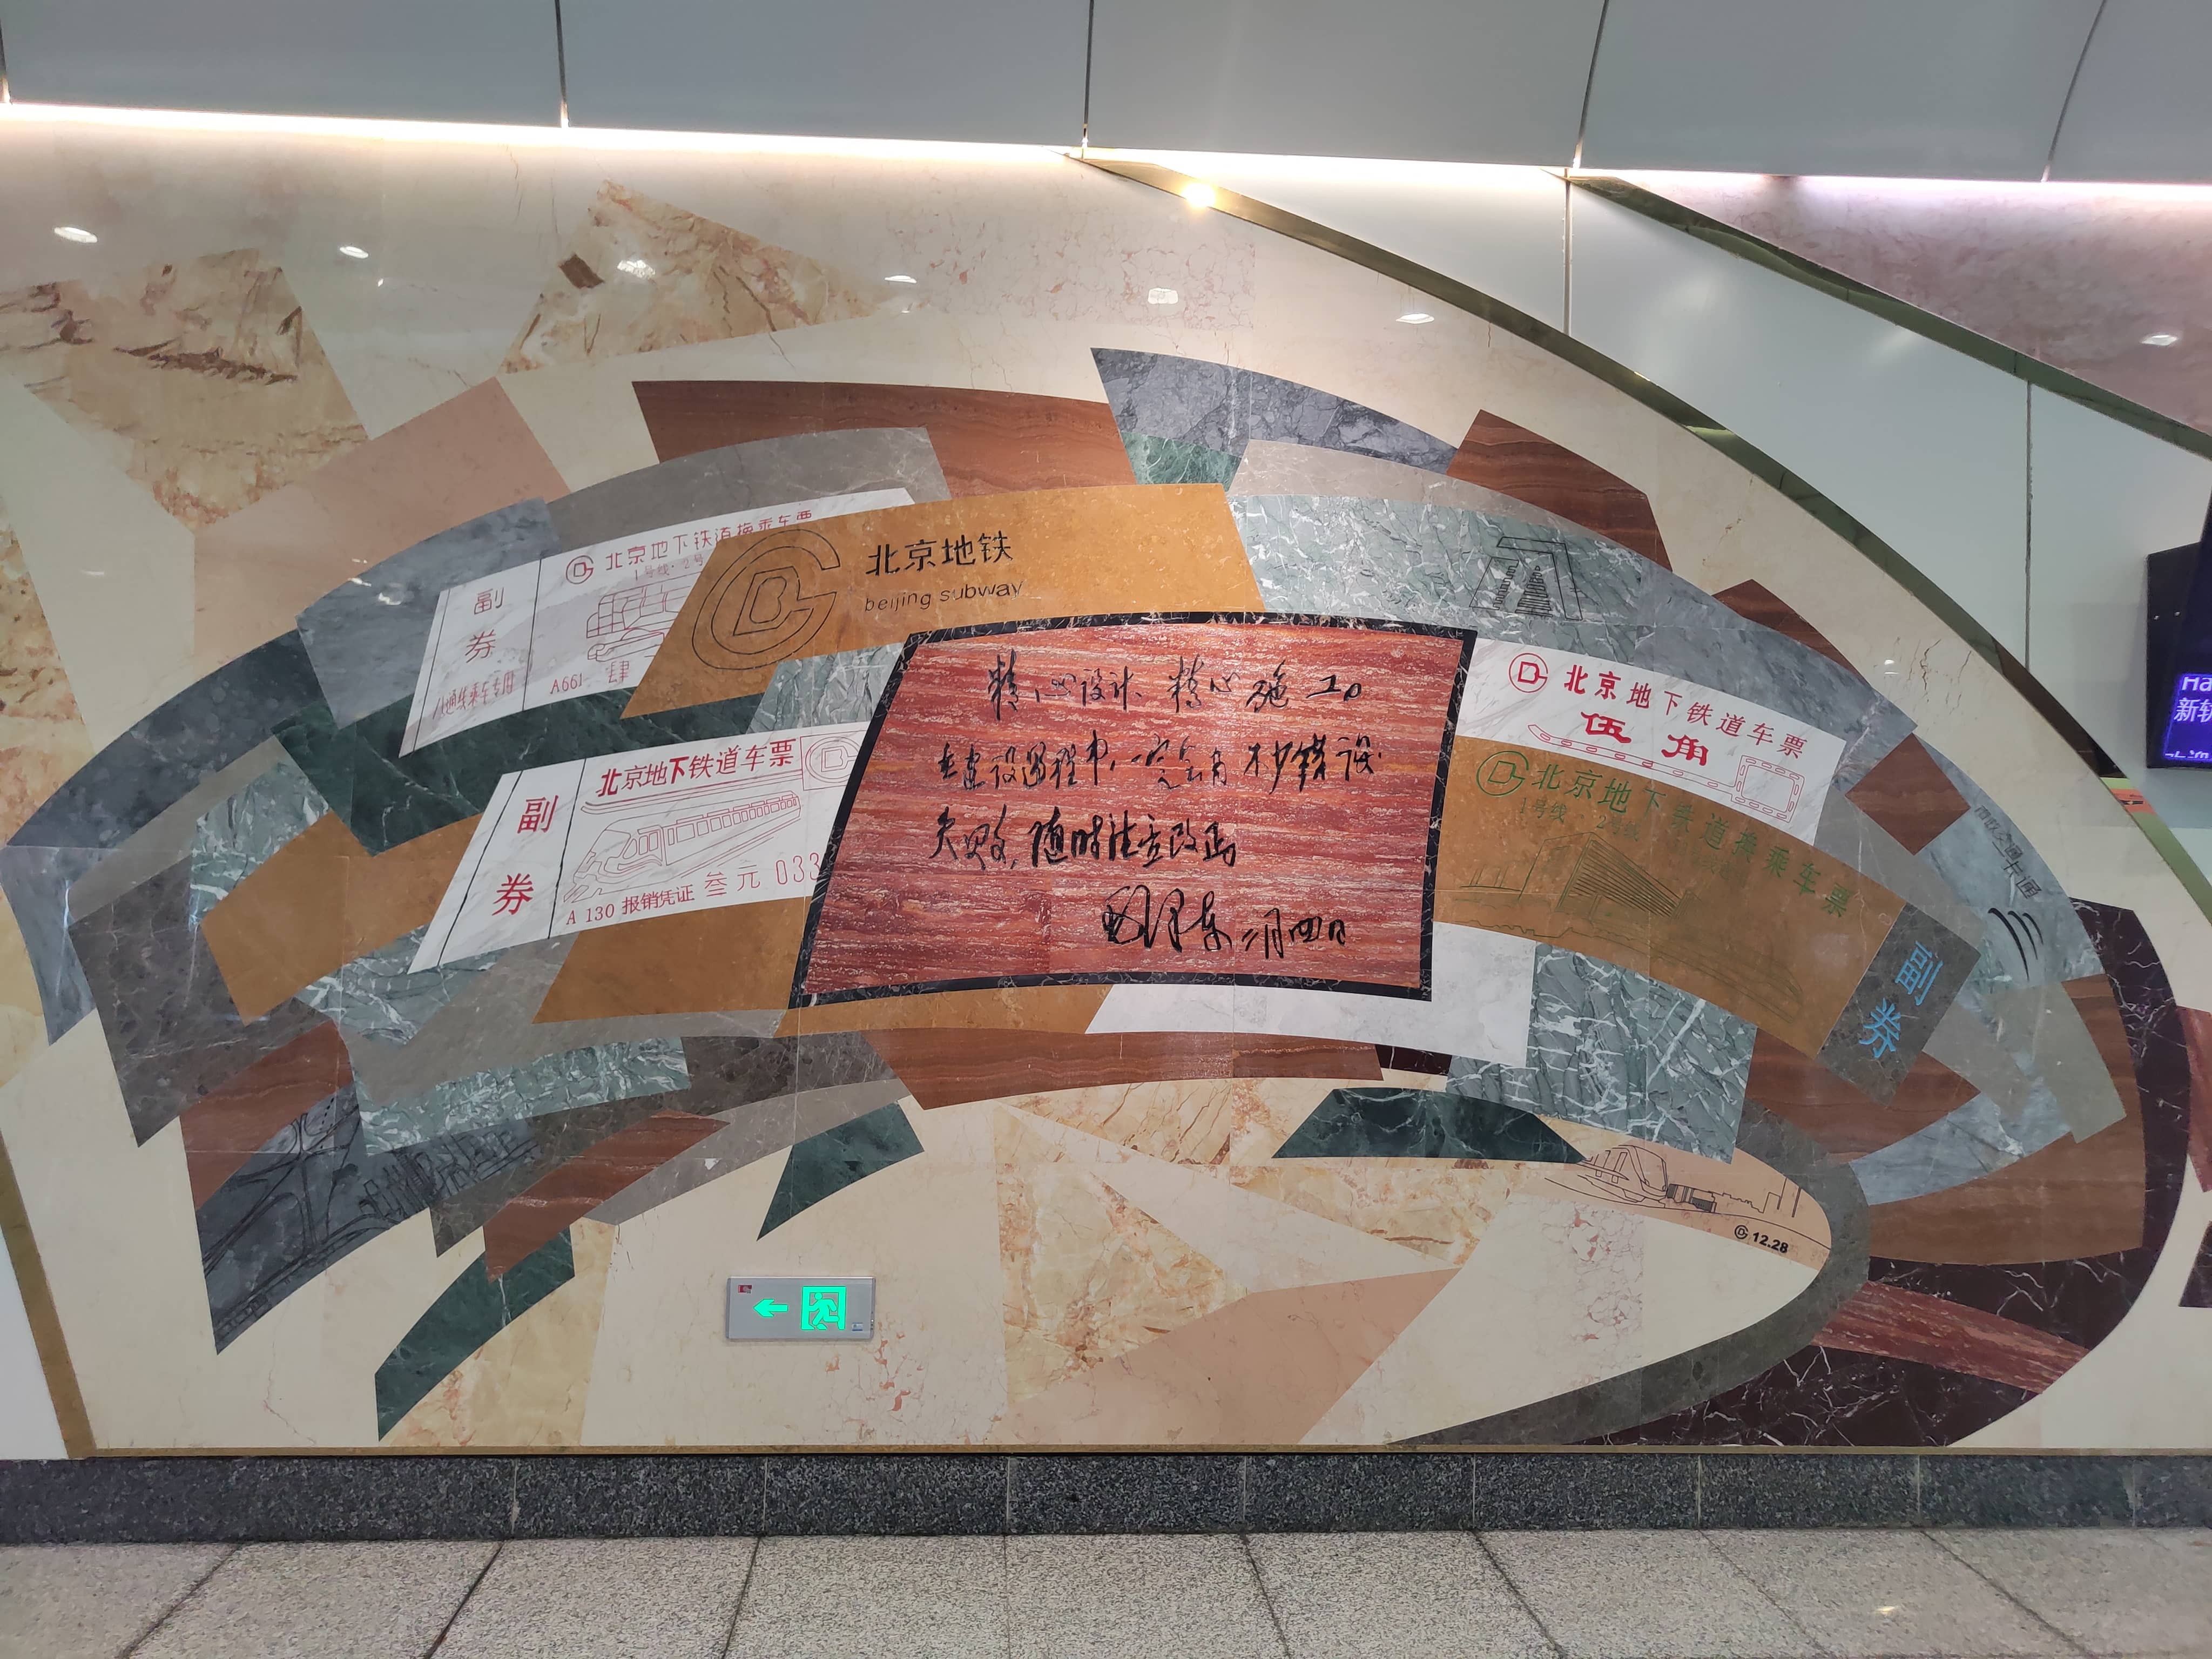 北京地下铁道换乘车票
1号线·2号
副券
八通线乘车专用
A661
肆
北京地铁
beijing subway
副券
北京地下铁道车票
A 130 报销凭证 叁元 033
精心设计、精心施工。
在建设过程中,一定会有不少错误
失败,随时注意改正
毛泽东 二月四日
北京地下铁道车票
伍角
北京地下铁道换乘车票
1号线
副券
市政交通一卡通
12.28
Ha
新轨